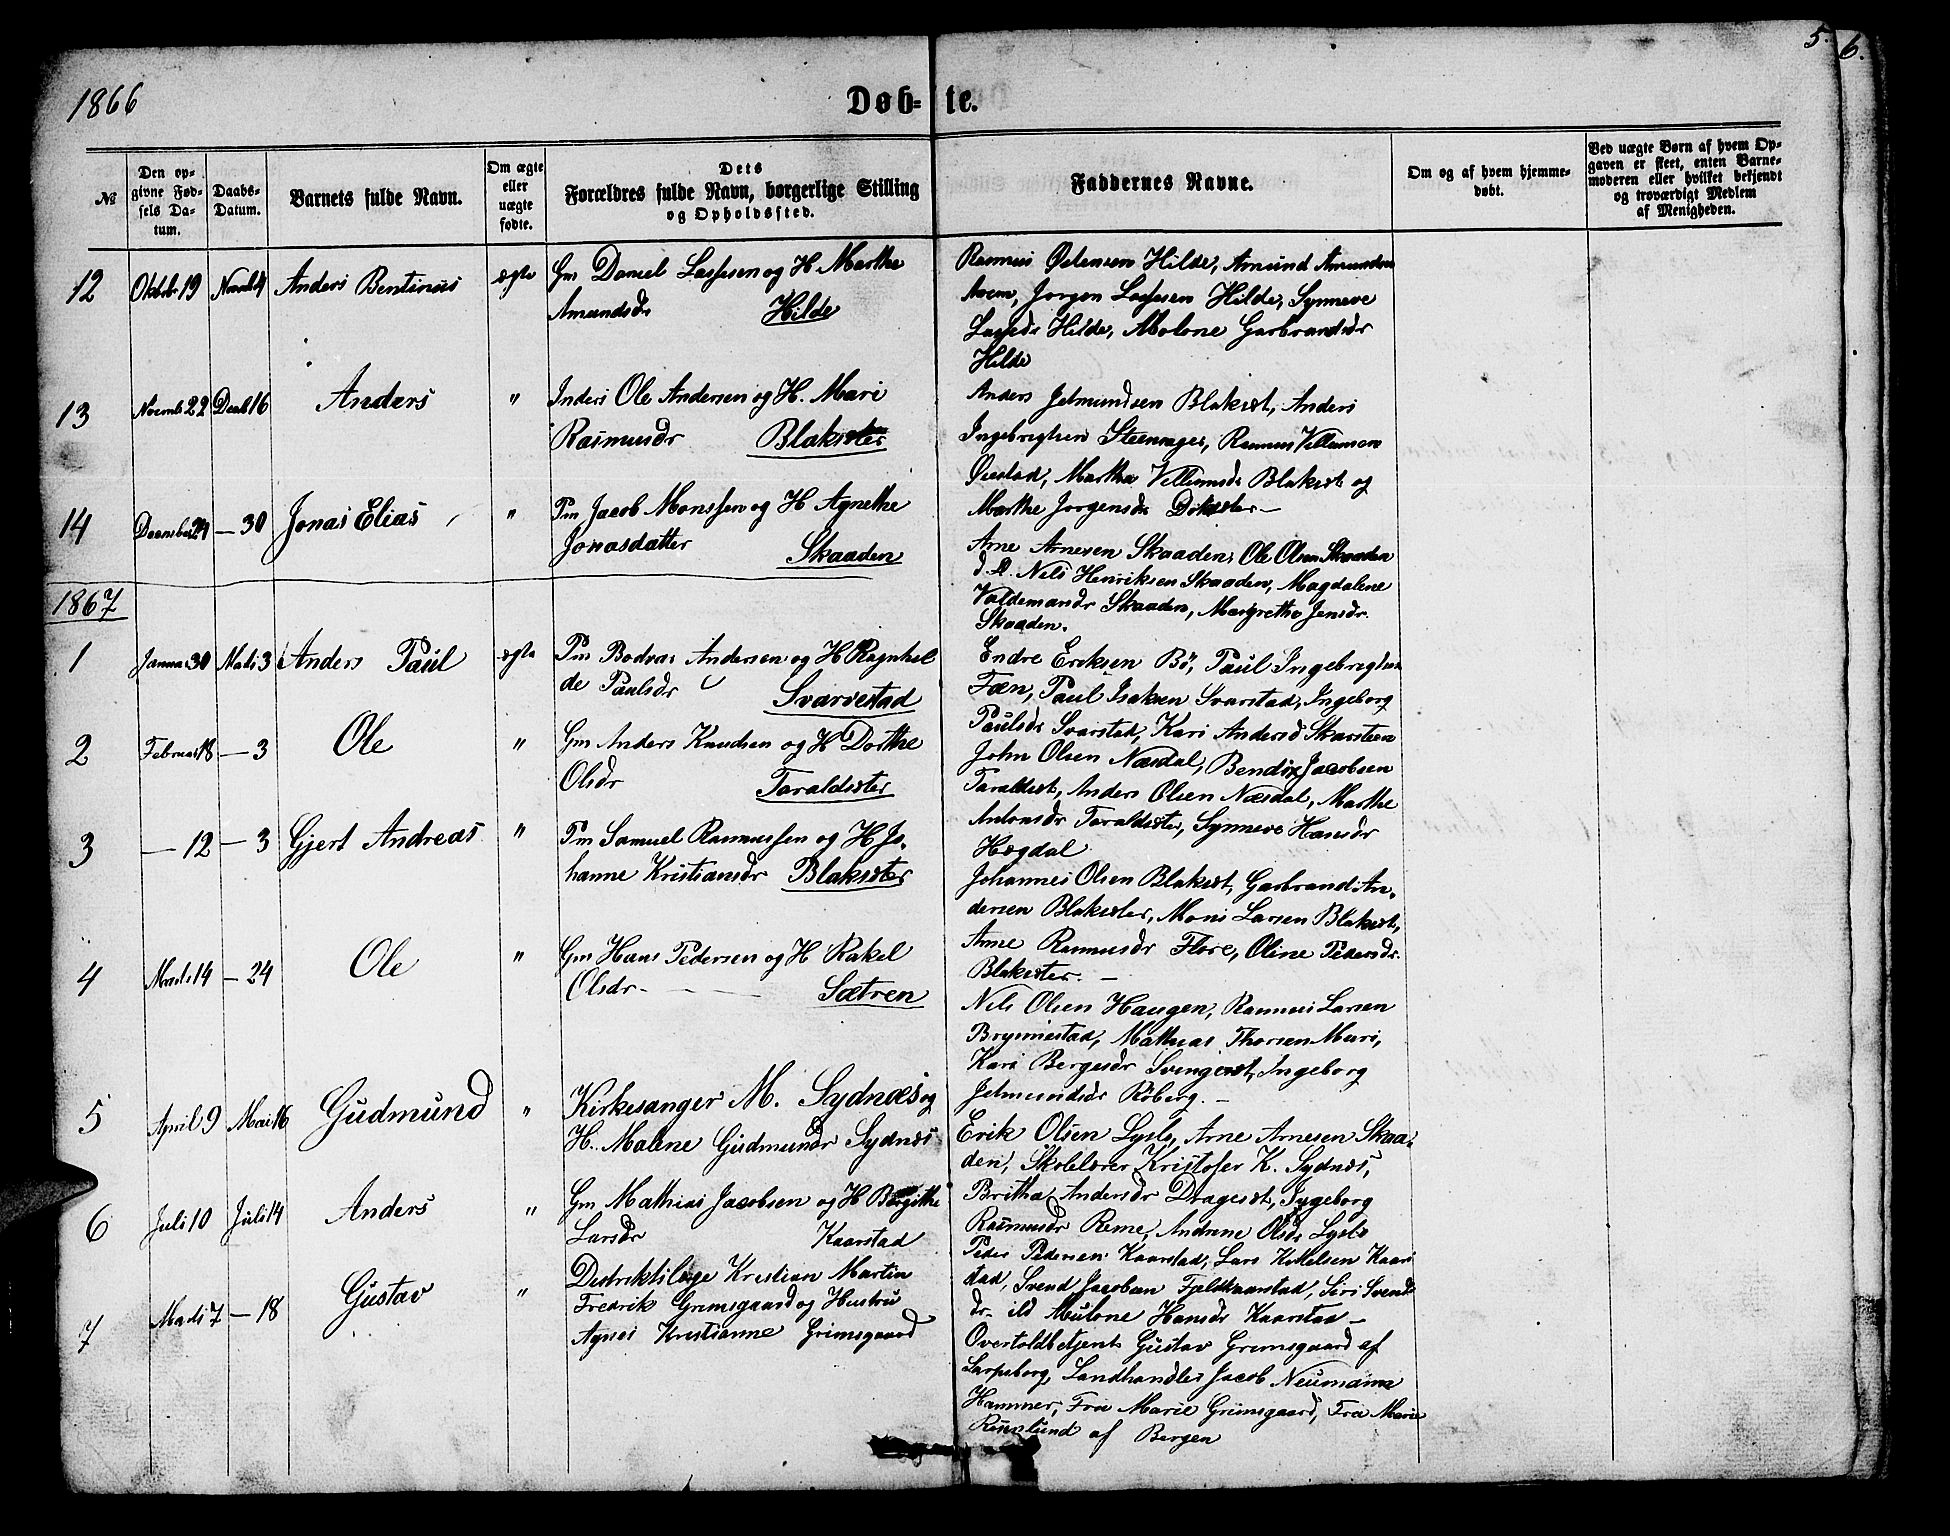 5. 6.
1866
Døb- te.
№
Den op-
givne Fød-
sels Da-
tum.
Daabs-
Datum.
Barnets fulde Navn.
Om ægte
eller
uægte
fødte.
Dets
Forældres fulde Navn, borgerlige Stilling
og Opholdssted.
Faddernes Navne.
Om og af hvem hjemme-
døbt.
Ved uægte Børn af hvem Op-
gaven er skeet, enten Barne-
moderen eller hvilket bekjendt
og troværdigt Medlem
af Menigheden.
12 Oktob. 19 Novb 4 Anders Bentinus ægte Gm Daniel Lassesen og H. Marthe
Amundsdr Hilde
Rasmus Hilde, Amund Amundsen
Jorgen Lassesen Hilde, Synneve
Hilde, Malene Garbrandsdr
Hilde
13 Novemb 22 Decb 16 Anders " Inders Ole Andersen og H. Mari
Rasmusdr Blaksæter
Anders Jetmundsen Blaksæt, Anders
Ingebrigtsen Rasmus Villumsen
Øvestad, Marthe Villumsdr Blaksæt og
Marthe Jorgensdr
14 December 24 — 30 Jonas Elias " Pm Jacob Monssen og H Agnethe
Jonasdatter Skaaden
Arne Arnesen Skaaden, Ole Olsen Skaaden
Nils Henriksen Skaaden, Magdalene
Valdemarsdr Skaaden, Margrethe Jensdr.
Skaaden.
1867
1 Januar 30 Mats 3 Anders Paul ægte Pm Bodvar Andersen og H Ragnhil
de Paulsdr Svarvestad
Endre Eriksen Bö, Paul Ingebrigtsen
Fæn, Paul Isaksen Svarstad, Ingeborg
Paulsdr Svarstad, Kari Andersd Skarsteen
2 Februar 18 — 3 Ole " Gm Anders Knudsen og H Dorthe
Olsdr Taraldsæter
John Olsen Næsdal, Bendix Jacobsen
Taraldsæt, Anders Olsen Næsdal, Marthe
Antonsdr Taraldsæter, Synneve Hansdr
Hogdal
3 — 12 — 3 Gjert Andreas " Pm Samuel Rasmussen og H Jo-
hanne Kristiansdr Blaksæter
Johannes Olsen Blaksæt, Garbrand An-
dersen Blaksæter, Mons Larsen Blaksæt,
Anne Rasmusdr Flore, Oline Pedersdr.
Blaksæter. —
4 Mats 14 — 24 Ole " Gm Hans Pedersen og H Rakel
Olsdr — Sætren
Nils Olsen Haugen, Rasmus Larsen
Bryniestad, Mathias Thorsen Muri,
Kari Bergesdr Ingeborg
Jetmundsdr Roberg. —
5 April 9 Mai 16 Gudmund " Kirkesanger M. Sydnæs og
H. Malene Gudmundr Sydnæs
Erik Olsen Lyslo, Arne Arnesen Skaa-
den, Skolelærer Kristofer K. Sydnæs,
Britha Andersdr Dragesæt, Ingeborg
Rasmusdr Reme, Andrine Olsdr Lyslo
6 Juli 10 Juli 14 Anders " Gm Mathias Jacobsen og H Birgithe
Larsdr Kaarstad
Peder Pedersen Kaarstad, Lars Kaar
stad, Svend Jacobsen Fjeldkaarstad, Siri Svends
dr Malene Hansdr Kaarstad —
7 Mads 7 — 18 Gustav " Distriktslæge Kristian Martin
Fredrik Grimsgaard og Hustru
Agnes Kristianne Grimsgaard
Overtoldbetjent Gustav Grimsgaard af
Sarpsborg, Landhandler Jacob Neumann
Hammer, Fru Marie Grimsgaard, Fru Marie
af Bergen